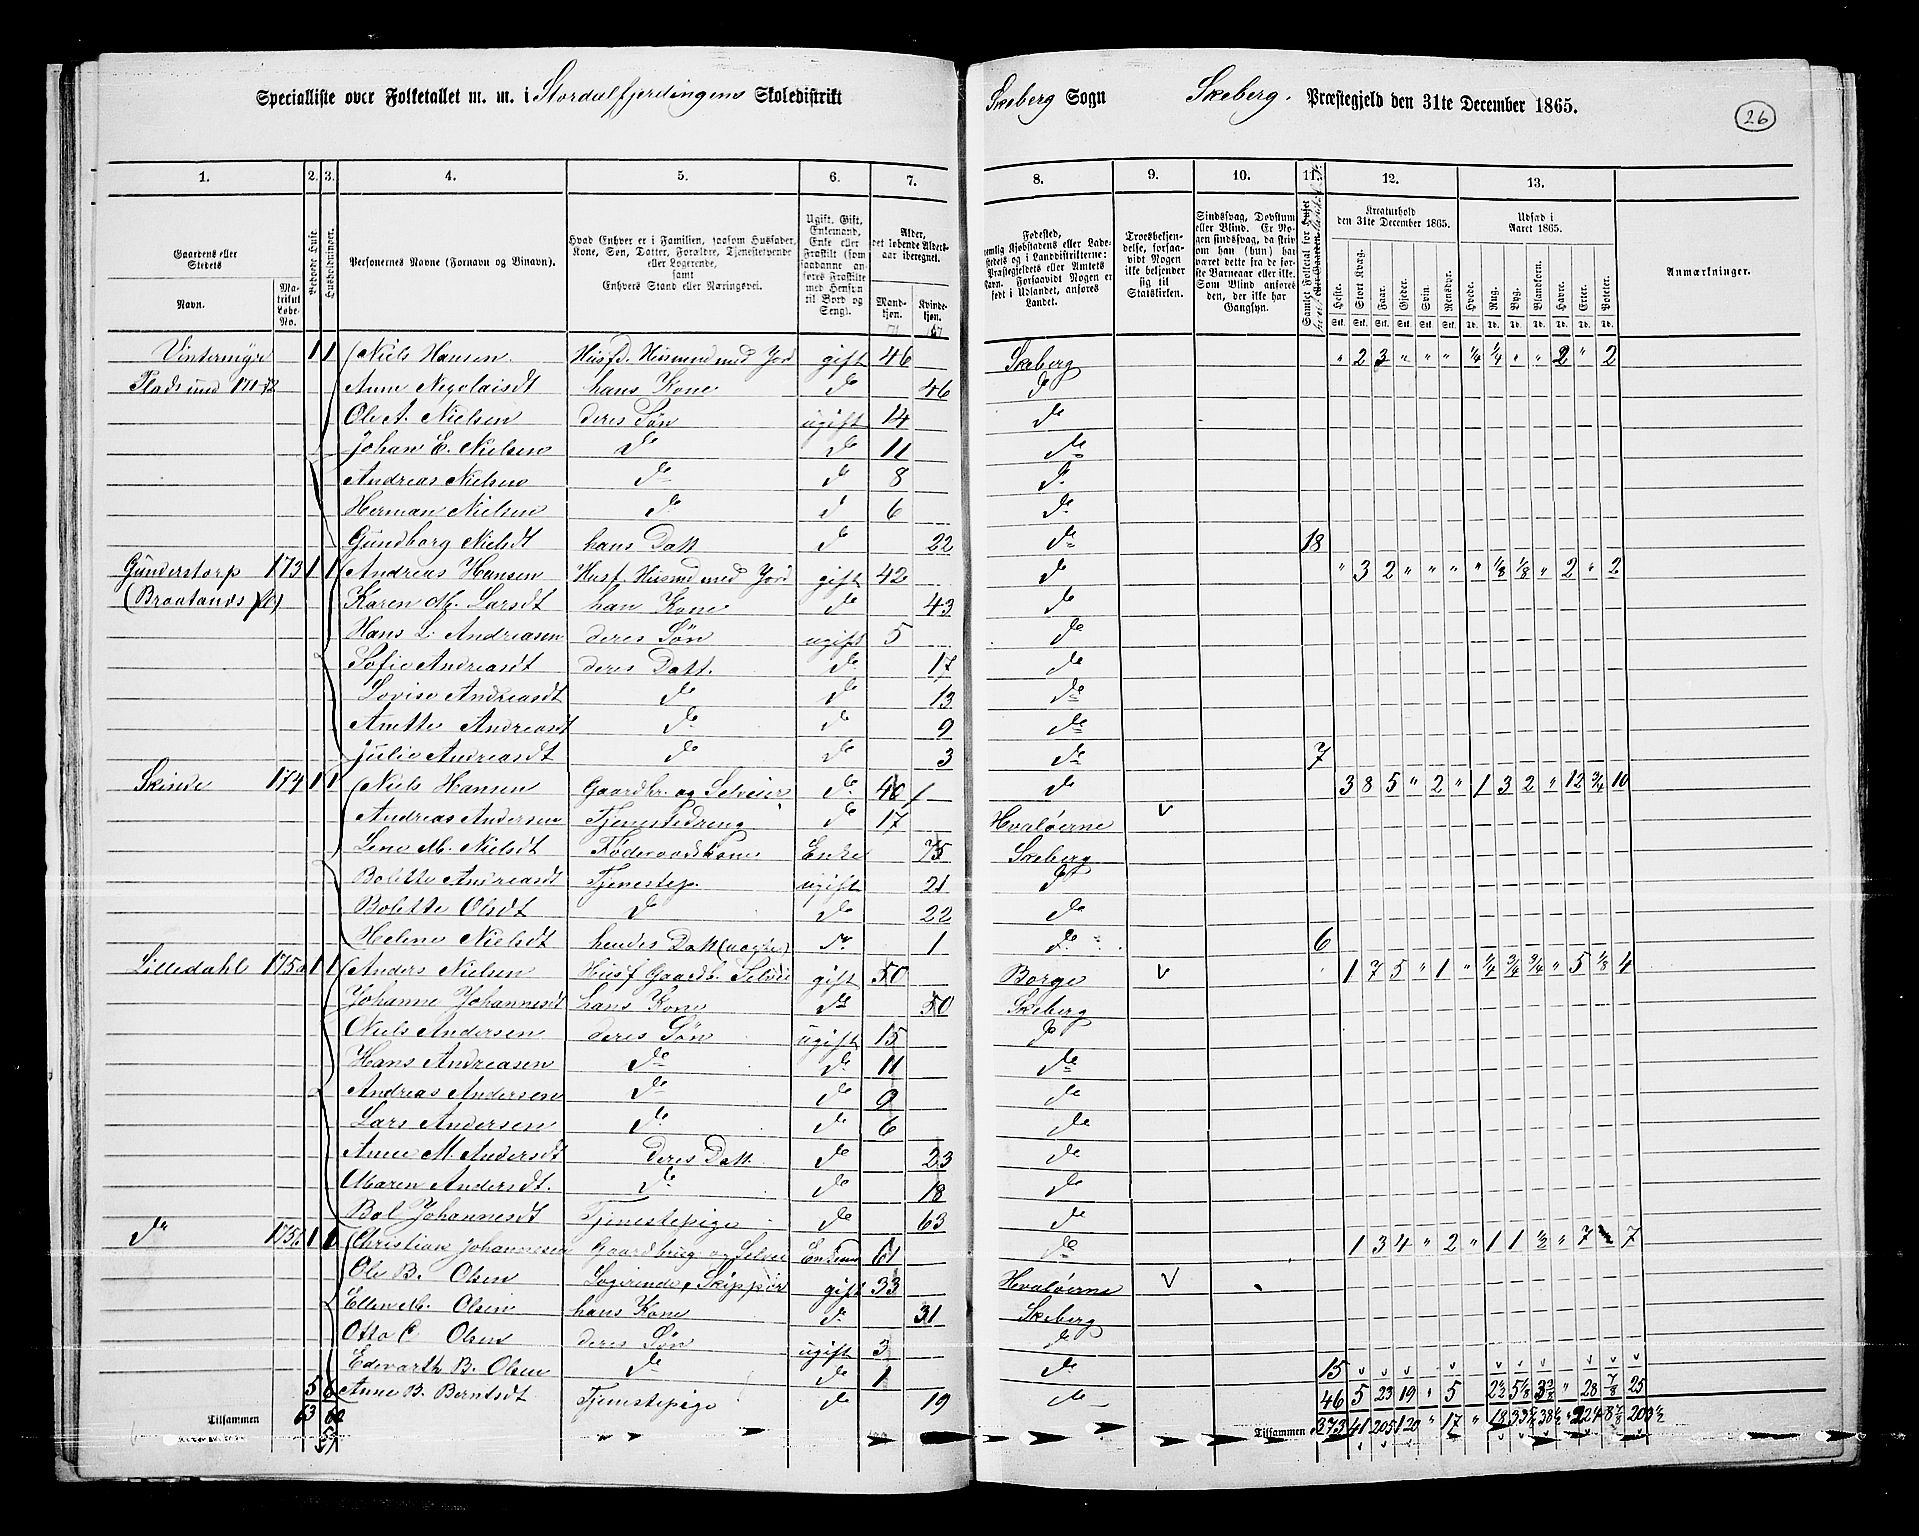 Specialliste over Folketallet m. m. i Stordalfjerdingens Skoledistrikt Skeberg Sogn Skeberg. Præstegjeld den 31te December 1865. 26
1. 2. 3. 4. 5. 6. 7. 8. 9. 10. 11. 12. 13.
Gaardens eller Stedets
Navn.
Matrikul Løbe-No.
Beboede Huse.
Husholdninger.
Personernes Navne (Fornavn og Binavn).
Hvad Enhver er i Familien, saasom Husfader, Kone, Søn, Datter, Forældre, Tjenestetyende eller Logerende, samt Enhvers Stand eller Næringsvei.
Ugift, Gift, Enkemand, Enke eller Fraskilt (som saadanne anføres Fraskilte med Hensyn til Bord og Seng).
Alder, det løbende Alders-aar iberegnet.
Mandkjøn. Kvindekjøn.
Fødested,
Troesbekjendelse, forsaavidt Nogen ikke bekjender sig til Statskirken.
Sindssvag, Døvstum eller Blind. Er Nogen sindssvag, da skrives om han (hun) har været dette fra de første Barneaar eller ikke. Som Blind anføres den, der ikke har Gangsyn.
Kreaturhold den 31te December 1865.
Heste. Stort Kvæg. Faar. Gjeder. Svin. Rensdyr.
Udsæd i Aaret 1865.
Hvede. Rug. Byg. Blandkorn. Havre. Erter. Poteter.
Anmærkninger.
Vintermyr 1 1 Niels Hansen Husfd. Husmd med Jord gift 46 Skeberg " 2 3 " " " ¼ ¼ " " 2 " 2
Plads und 171-72 Anne Nicolaisdt hans Kone do 46 do
Ole A. Nielsen deres Søn ugift 14 do
Johan E. Nielsen do do 11 do
Andreas Nielsen do do 8 do
Herman Nielsen do do 6 do
Gundborg Nielsdt hans Datt do 22 do 18
Gunderstorp 173 1 1 Andreas Hansen Husf. Husmd med Jord gift 42 do " 3 2 " " " " ⅛ ⅛ " 2 " 2
(Braatands Karen M. Larsdt han Kone do 43 do
Hans L. Andreasen deres Søn ugift 5 do
Sofie Andreasdt deres Datt. do 17 do
Lovise Andreasdt do do 13 do
Anette Andreasdt do do 9 do
Julie Andreasdt do do 3 do 7
Skinde 174 1 1 Niels Hansen Gaardbr. og Selveier do 40 do 3 8 5 " 2 " 1 3 2 " 12 ¾ 10
Andreas Andersen Tjenestedreng do 17 Hvaløerne v
Lene M. Nielsdt Føderaadskone Enke 75 Skeberg
Bolette Andreasdt Tjenestep. ugift 21 do
Bolette Olsdt do do 22 do
Helene Nielsdt hendes Datt (uægte) do 1 do 6
Lilledahl 175a 1 1 Anders Nielsen Husf Gaardb. Selvei gift 50 Borge v 1 7 5 " 1 " ¼ ¾ ¾ " 5 ⅛ 4
Johanne Johannesdt hans Kone do 50 Skeberg
Niels Andersen deres Søn ugift 15 do
Hans Andreasen do do 11 do
Andreas Andersen do do 9 do
Lars Andersen do do 6 do
Anne M. Andersdt deres Datt do 23 do
Maren Andersdt. do do 18 do
Bol. Johannesdt Tjenestepige do 63 do
do 175b 1 1 Christian Johannesen Gaardbrug. og Selvei Enkem 61 do 1 3 4 " 2 " 1 1 " 7 7
Ole B. Olsen Logerende, Skipper gift 33 Hvaløerne v
Ellen M. Olsen hans Kone do 31 Skeberg
Otto C. Olsen deres Søn ugift 3 do
Edevarth B. Olsen do do 1 do 15
5 6 Anne B. Berntsdt Tjenestepige do 19 do 46 5 23 19 " 5 28 ⅞ 25
Tilsammen 63 Tilsammen 373 41 205 120 " 17 "